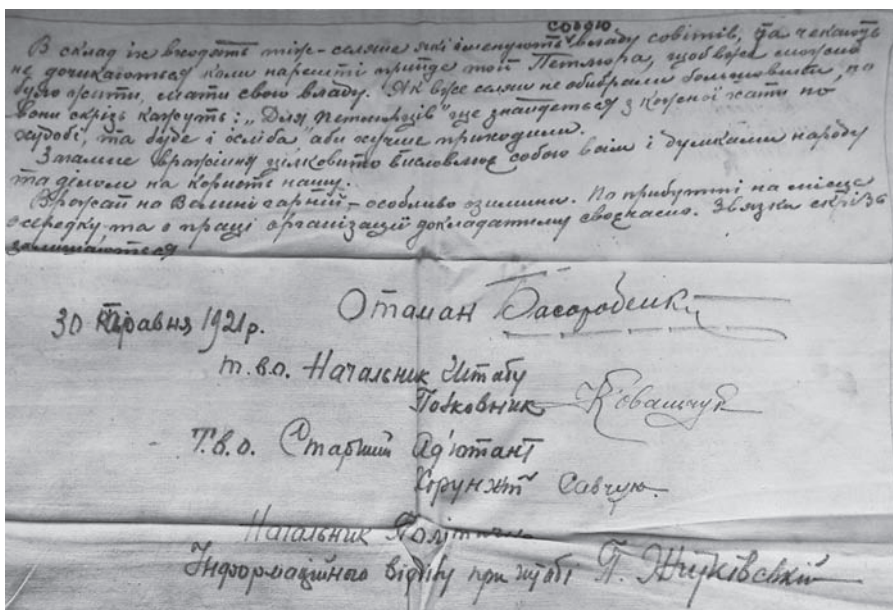 собою
В склад їх входять тіж-селяне які іменують владу совітів, та чекають
не дочикаються коли нарешті прийде той Петлюра, щоб вже можно
було жити, мати свою владу. Як вже селян не обибрали большовики, но
вони скрізь кажуть: „Для Петлюрців" ще знайдеться з кожної хати по
худобі, та буде і хліба" аби хутчше приходили.
Загальне вражіння цілковито висловлює собою всім і думками народу
та ділом на користь нашу.
Врожай на Волині гарний – особливо озимини. По прибутті на місце
осередку та о праці організацій докладатиму своєчасно. Звязки скрізь
залишаються
30 травня 1921 р.
Отаман
т.в.о. Начальник Штабу
Полковник Ковальчук
Т.в.о. Старший Ад'ютант
Хорунжий Савчук
Начальник Політично
Інформаційного відділу при штабі П.